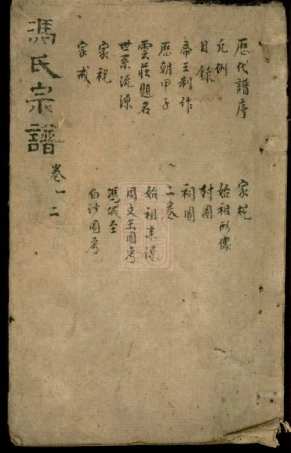 馮氏宗譜
卷一 二
歷代譜序
凡例
目錄
帝王制作
歷朝甲子
雲莊題名
世系流源
家祝
家戒
家規
始祖所像
村圖
祠圖
二卷
始祖來源
周文王圖号
馮城至
白沙圖号